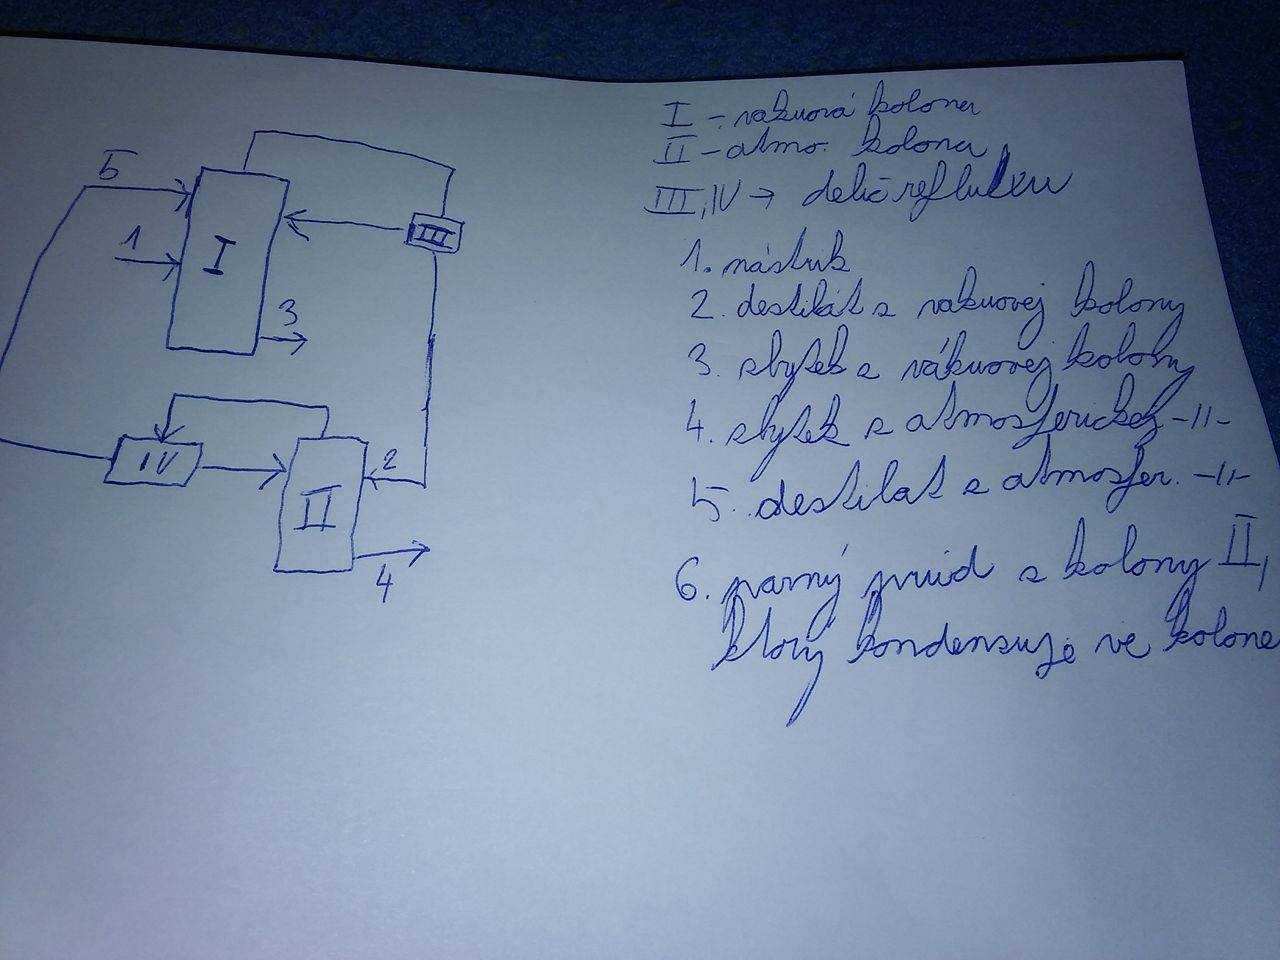 I - vakuová kolona
II - atmo. kolona
III, IV → delič refluxu
1. nástrik
2. destilát z vakuovej kolony
3. zbytek z vákuovej kolony
4. zbytek z atmosferickej -II-
5. destilát z atmosfer. -II-
6. parný prúd z kolony II,
ktorý kondenzuje ve kolone
5
1
I
III
3
IV
2
II
4